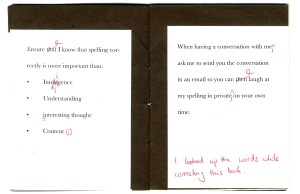 Ensure that I know that spelling cor-
rectly is more important than:
• Intelligence
• Understanding
• interesting thought
• Content
When having a conversation with me
ask me to send you the conversation
in an email so you can then laugh at
my spelling in private on your own
time.
I looked up the words while
correcting this book.